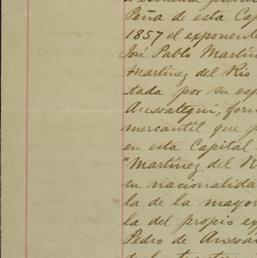 Peña de esta Cap
1857 el exponente
José Pablo Martín
Martinez del Rio
tada por su esp
Ansoategui, for
mercantil que
en esta Capital
"Martinez del R
su nacionalida
la de la mayor
la del propio ex
Pedro de Ansoa